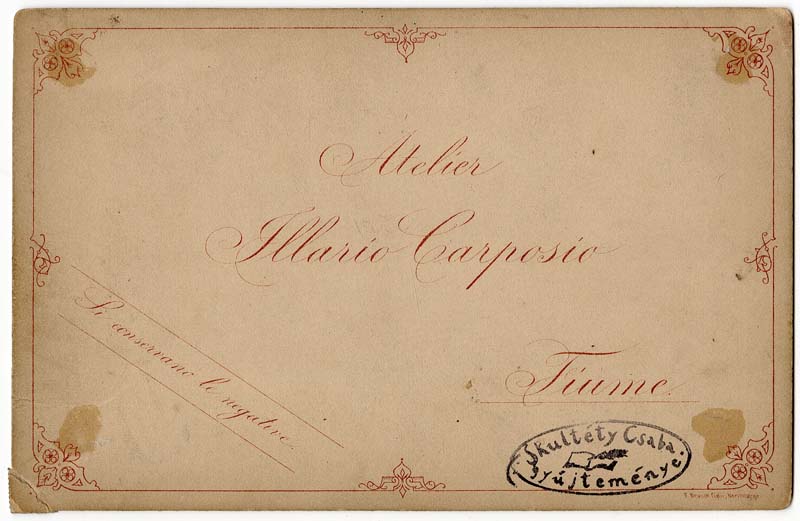 Atelier
Illario Carposio
Si conservano le negative.
Fiume.
Skultéty Csaba
gyűjteménye